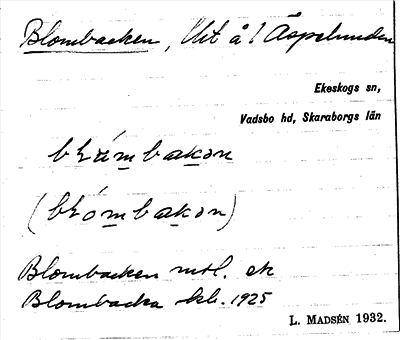 Blombacken, Ut å! Äspelunden
Ekeskogs sn,
Vadsbo hd, Skaraborgs län
Blombacken mtl. ek
Blombacka kb. 1925
L. MADSÉN 1932.